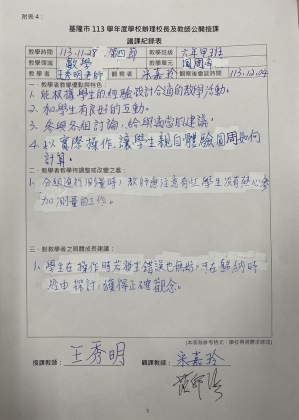 附表4：
基隆市 113 學年度學校辦理校長及教師公開授課
議課紀錄表
教學時間 113.11.28. 第四節 教學班級 六年甲班
教學領域 數學 教學單元 圓周長
教學者 王秀明老師 觀課者 宋嘉玲 觀察後會談時間 113.12.04
一、教學者教學優點與特色：
1. 能根據學生的經驗設計合適的教學活動。
2. 和學生有良好的互動。
3. 參與各組討論，給與適當的建議。
4. 以實際操作，讓學生親自體驗圓周長如何
計算。
二、教學者教學待調整或改變之處：
1. 分組進行測量時，教師需注意有些學生沒有熱心參
加測量的工作。
三、對教學者之具體成長建議：
1. 學生在操作時若發生錯誤也無妨，可在歸納時
經由探討，獲得正確觀念。
(本表為參考格式，學校得視需求修改)
授課教師： 王秀明 觀課教師： 宋嘉玲
5